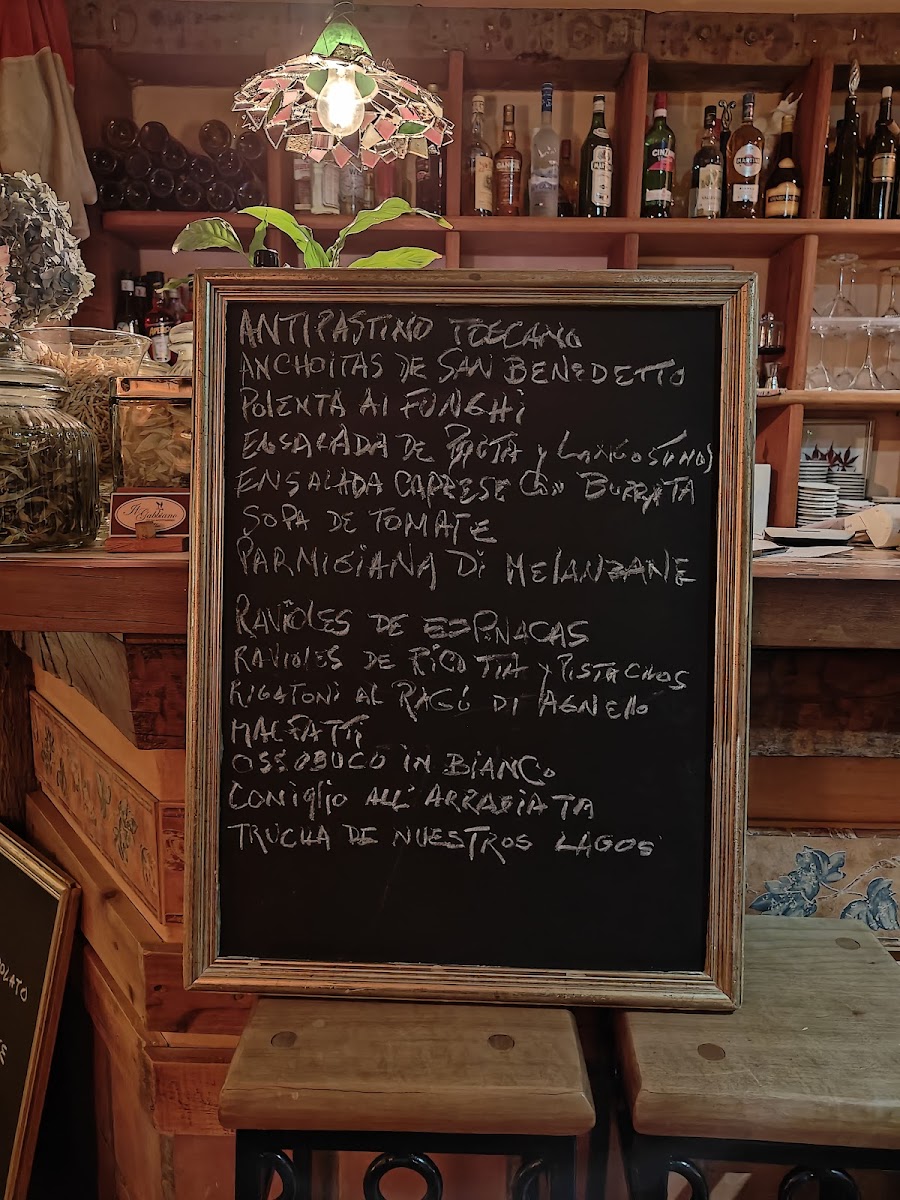 ANTIPASTINO TOSCANO
ANCHOITAS DE SAN BENEDETTO
POLENTA AI FUNGHI
ENSALADA DE y LANGOSTINOS
ENSALADA CAPRESE CON BURRATA
SOPA DE TOMATE
PARMIGIANA Di MELANZANE
RAVIOLES DE ESPINACAS
RAVIOLES DE RICOTTA y PISTACHOS
RIGATONI AL RAGÚ DI AGNELLO
MALFATTI
OSSOBUCO iN BIANCO
CONiGlio ALL' ARRABIATA
TRUCHA DE NUESTROS LAGOS
Il Gabbiano
CINZANO
MARTINI
OLATO